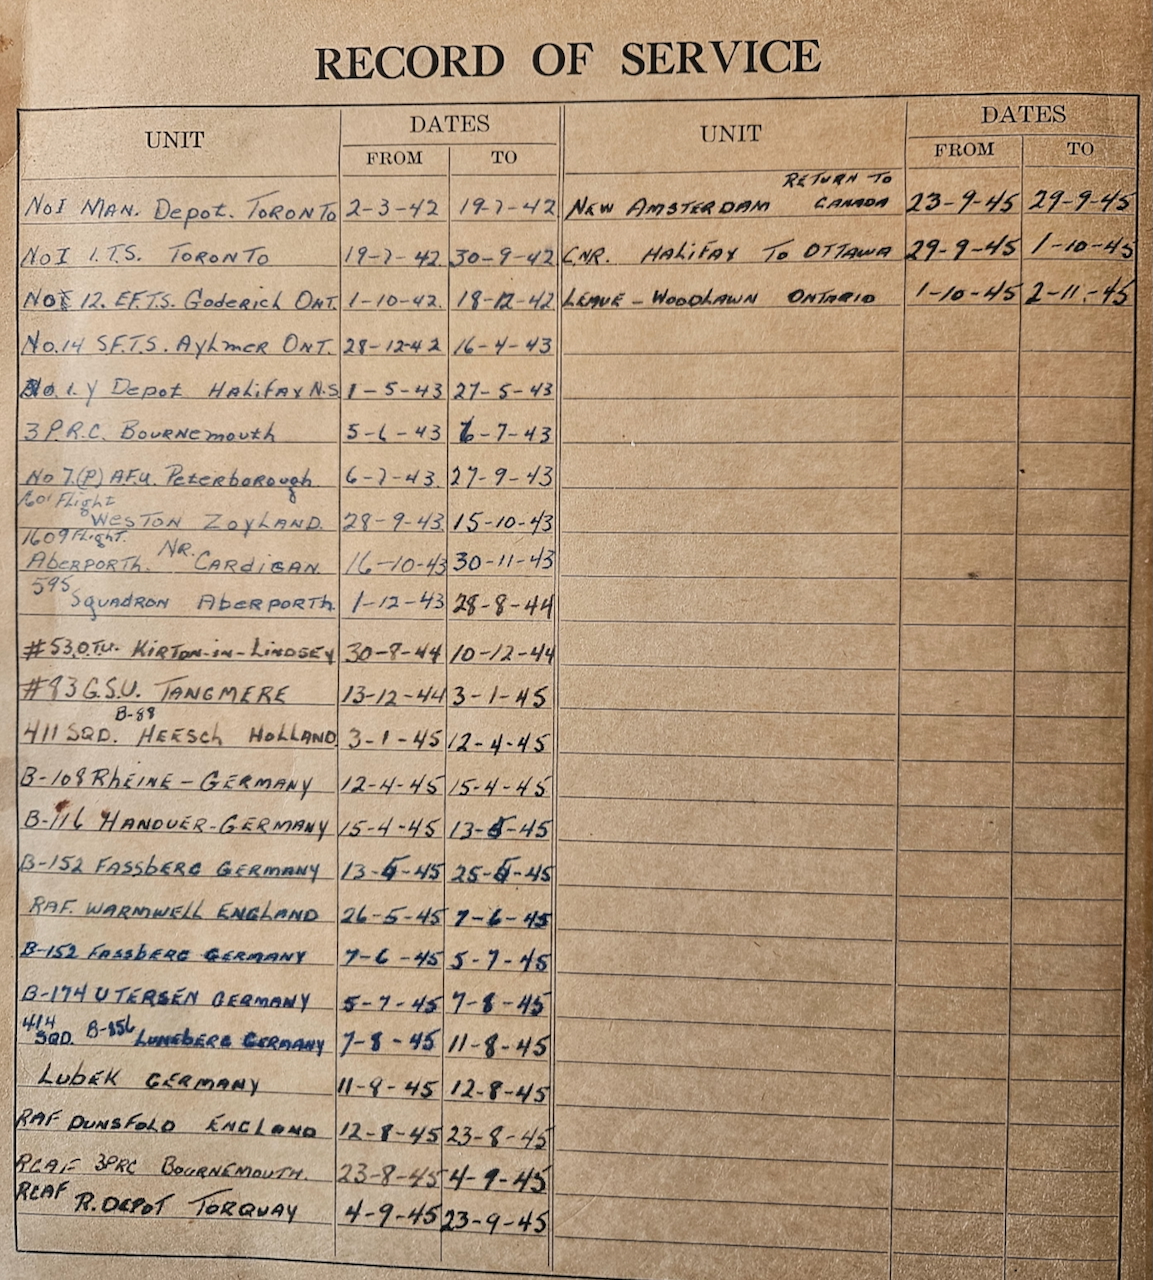 RECORD OF SERVICE
UNIT DATES FROM TO UNIT DATES FROM TO
No I MAN. Depot. TORONTO 2-3-42 19-7-42
No I I.T.S. TORONTO 19-7-42 30-9-42
No 12. E.F.T.S. Goderich ONT. 1-10-42 18-12-42
No. 14 S.F.T.S. Aylmer ONT. 28-12-42 16-4-43
No. 1. Y Depot HALiFAX N.S. 1-5-43 27-5-43
3 P.R.C. BOURNEmouth 5-6-43 6-7-43
No 7.(P) A.F.U. PeterborougH 6-7-43 27-9-43
1601 Flight
WESTON ZOYLAND. 28-9-43 15-10-43
1609 Flight.
ABERPORTH. NR. CARDIGAN. 16-10-43 30-11-43
595
SQUADRON ABERPORTH. 1-12-43 28-8-44
#53.O.T.U. KIRTON-IN-LINDSEY 30-8-44 10-12-44
#83 G.S.U. TANGMERE 13-12-44 3-1-45
B-88
411 SQD. HEESCH HOLLAND 3-1-45 12-4-45
B-108 RHEINE - GERMANY 12-4-45 15-4-45
B-116 HANOVER-GERMANY 15-4-45 13-5-45
B-152 FASSBERG GERMANY 13-5-45 25-5-45
RAF. WARMWELL ENGLAND 26-5-45 7-6-45
B-152 FASSBERG GERMANY 7-6-45 5-7-45
B-174 UTERSEN GERMANY 5-7-45 7-8-45
414
SQD. B-156 LUNEBERG GERMANY 7-8-45 11-8-45
LUBEK GERMANY 11-8-45 12-8-45
RAF DUNSFOLD ENGLAND 12-8-45 23-8-45
RCAF 3PRC BOURNEMOUTH. 23-8-45 4-9-45
RCAF
R. DEPOT TORQUAY 4-9-45 23-9-45
RETURN TO
NEW AMSTERDAM CANADA 23-9-45 29-9-45
C.N.R. HALiFAX TO OTTAWA 29-9-45 1-10-45
LEAVE - WOODLAWN ONTARIO 1-10-45 2-11-45